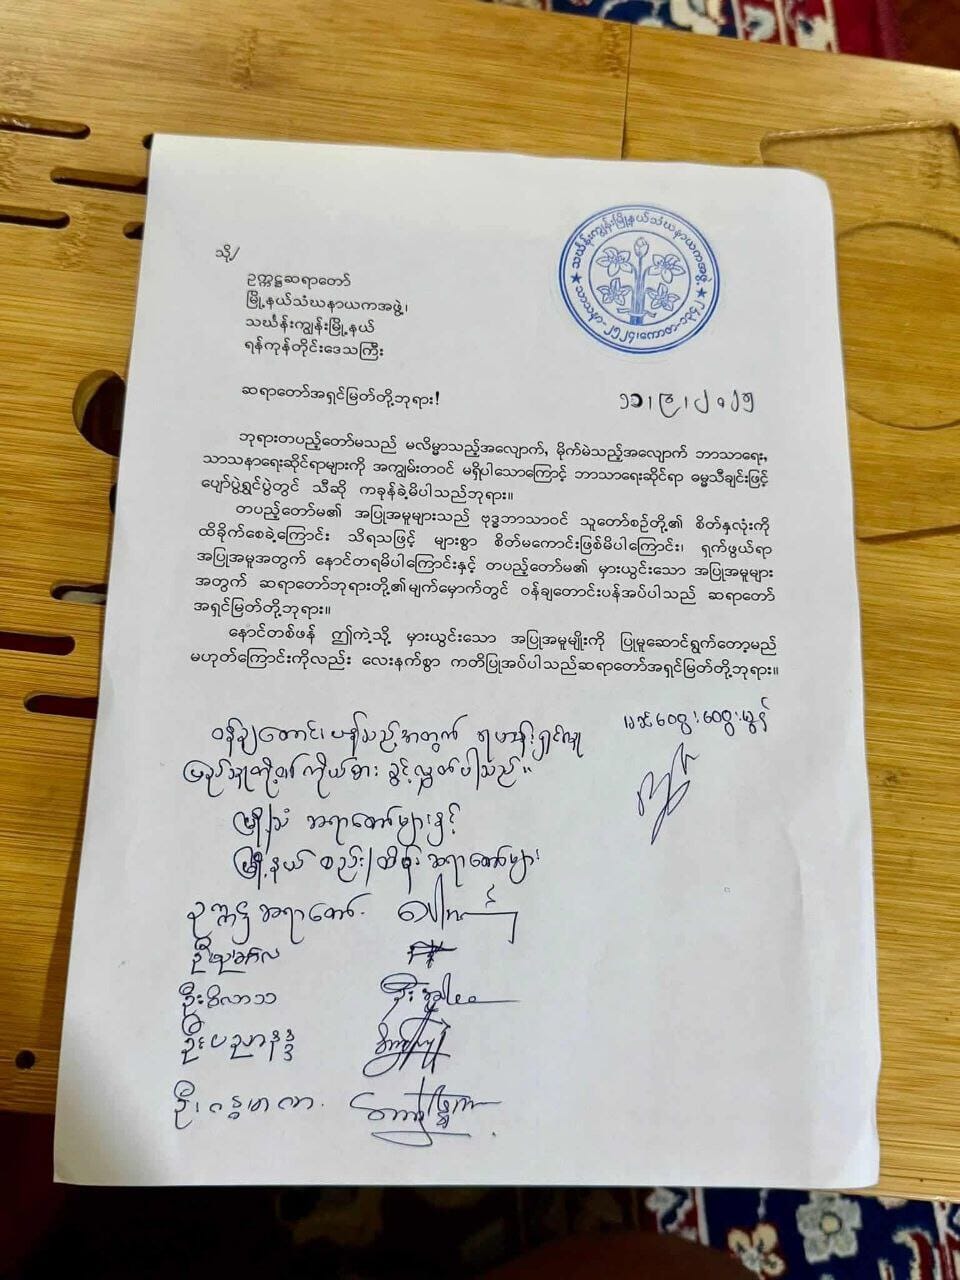 သို့/
ဥက္ကဋ္ဌဆရာတော်
မြို့နယ်သံဃနာယကအဖွဲ့၊
သင်္ဃန်းကျွန်းမြို့နယ်
ရန်ကုန်တိုင်းဒေသကြီး
သင်္ဃန်းကျွန်းမြို့နယ်သံဃနာယကအဖွဲ့
ဆရာတော်အရှင်မြတ်တို့ဘုရား!
ဘုရားတပည့်တော်မသည် မလိမ္မာသည့်အလျောက်, မိုက်မဲသည့်အလျောက် ဘာသာရေး,
သာသနာရေးဆိုင်ရာများကို အကျွမ်းတဝင် မရှိပါသောကြောင့် ဘာသာရေးဆိုင်ရာ ဓမ္မသီချင်းဖြင့်
ပျော်ပွဲရွှင်ပွဲတွင် သီဆို ကခုန်ခဲ့မိပါသည်ဘုရား။
တပည့်တော်မ၏ အပြုအမူများသည် ဗုဒ္ဓဘာသာဝင် သူတော်စဉ်တို့၏ စိတ်နှလုံးကို
ထိခိုက်စေခဲ့ကြောင်း သိရသဖြင့် များစွာ စိတ်မကောင်းဖြစ်မိပါကြောင်း၊ ရှက်ဖွယ်ရာ
အပြုအမူအတွက် နောင်တရမိပါကြောင်းနှင့် တပည့်တော်မ၏ မှားယွင်းသော အပြုအမူများ
အတွက် ဆရာတော်ဘုရားတို့၏မျက်မှောက်တွင် ဝန်ချတောင်းပန်အပ်ပါသည် ဆရာတော်
အရှင်မြတ်တို့ဘုရား။
နောင်တစ်ဖန် ဤကဲ့သို့ မှားယွင်းသော အပြုအမူမျိုးကို ပြုမူဆောင်ရွက်တော့မည်
မဟုတ်ကြောင်းကိုလည်း လေးနက်စွာ ကတိပြုအပ်ပါသည်ဆရာတော်အရှင်မြတ်တို့ဘုရား။
ဝန်ချတောင်းပန်သည့်အတွက် ရဟန်းရှင်လူ
ကိုယ်စား ခွင့်လွှတ်ပါသည်။
မြို့/သံ ဆရာတော်များနှင့်
မြို့နယ် စည်း/ထိန်း ဆရာတော်များ
ဥက္ကဋ္ဌဆရာတော်
ဦးဝိလာသ
ဦးပညာနန္ဒ